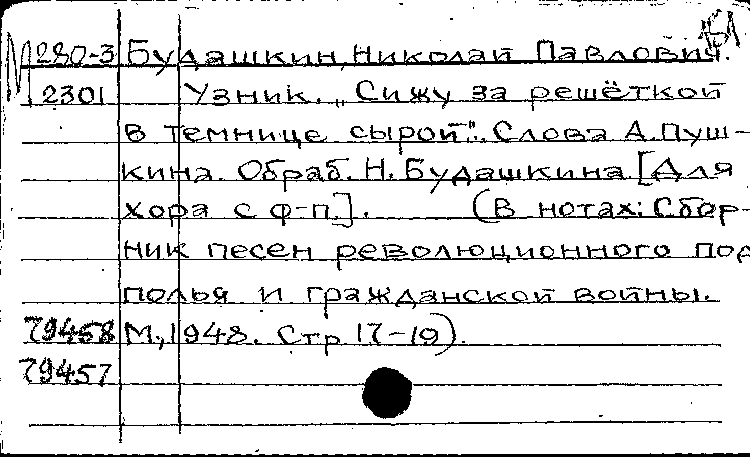 М280-3 Будашкин, Николай Павлович.
2301 Узник. „Сижу за решёткой
в темнице сырой". Слова А. Пуш-
кина. Обраб. Н. Будашкина [Для
хора с ф-п.]. (В нотах: Сбор-
ник песен революционного под
полья и гражданской войны.
79458 М., 1948. Стр 17-19).
79457